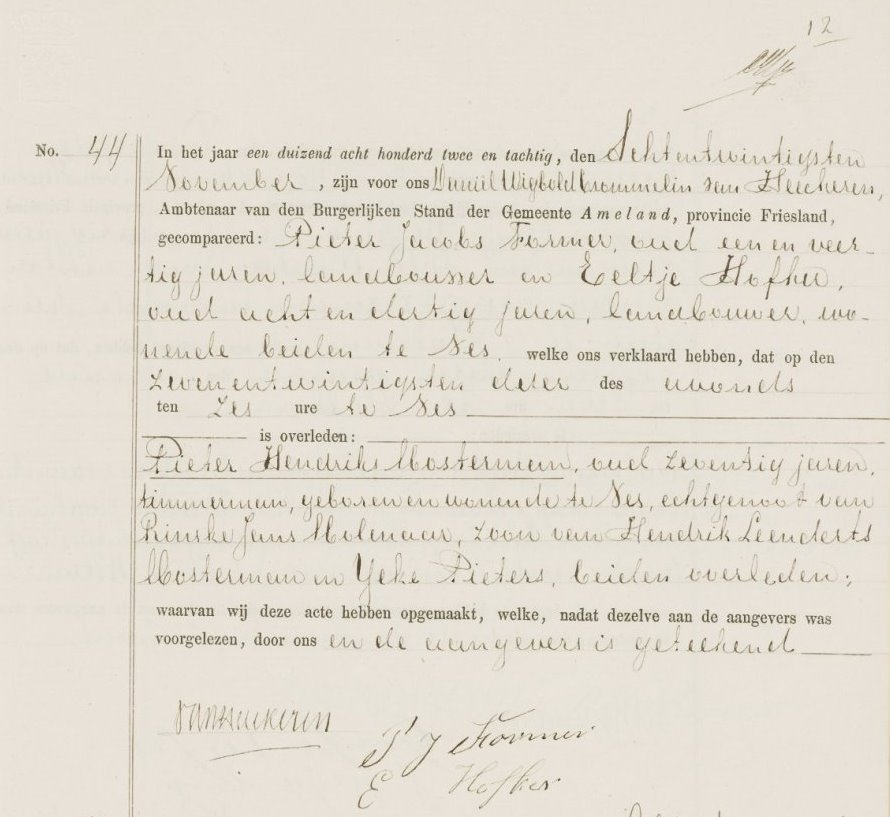 12
No. 44
In het jaar een duizend acht honderd twee en tachtig, den Achtentwintigsten
November, zijn voor ons Daniël Wigbold Crommelin van Heeckeren,
Ambtenaar van den Burgerlijken Stand der Gemeente Ameland, provincie Friesland,
gecompareerd: Pieter Jacobs Former, oud een en veer-
tig jaren, landbouwer en Eeltje Hofker,
oud acht en dertig jaren, landbouwer, wo-
nende beiden te Nes, welke ons verklaard hebben, dat op den
zevenentwintigsten dezer des avonds
ten zes ure te Nes
is overleden:
Pieter Hendriks Mosterman, oud zeventig jaren,
timmerman, geboren en wonende te Nes, echtgenoot van
Rimke Jans Molenaar, zoon van Hendrik Leenderts
Mosterman en Yeke Pieters, beiden overleden;
waarvan wij deze acte hebben opgemaakt, welke, nadat dezelve aan de aangevers was
voorgelezen, door ons en de aangevers is geteekend
van Heeckeren
P J Former
E Hofker